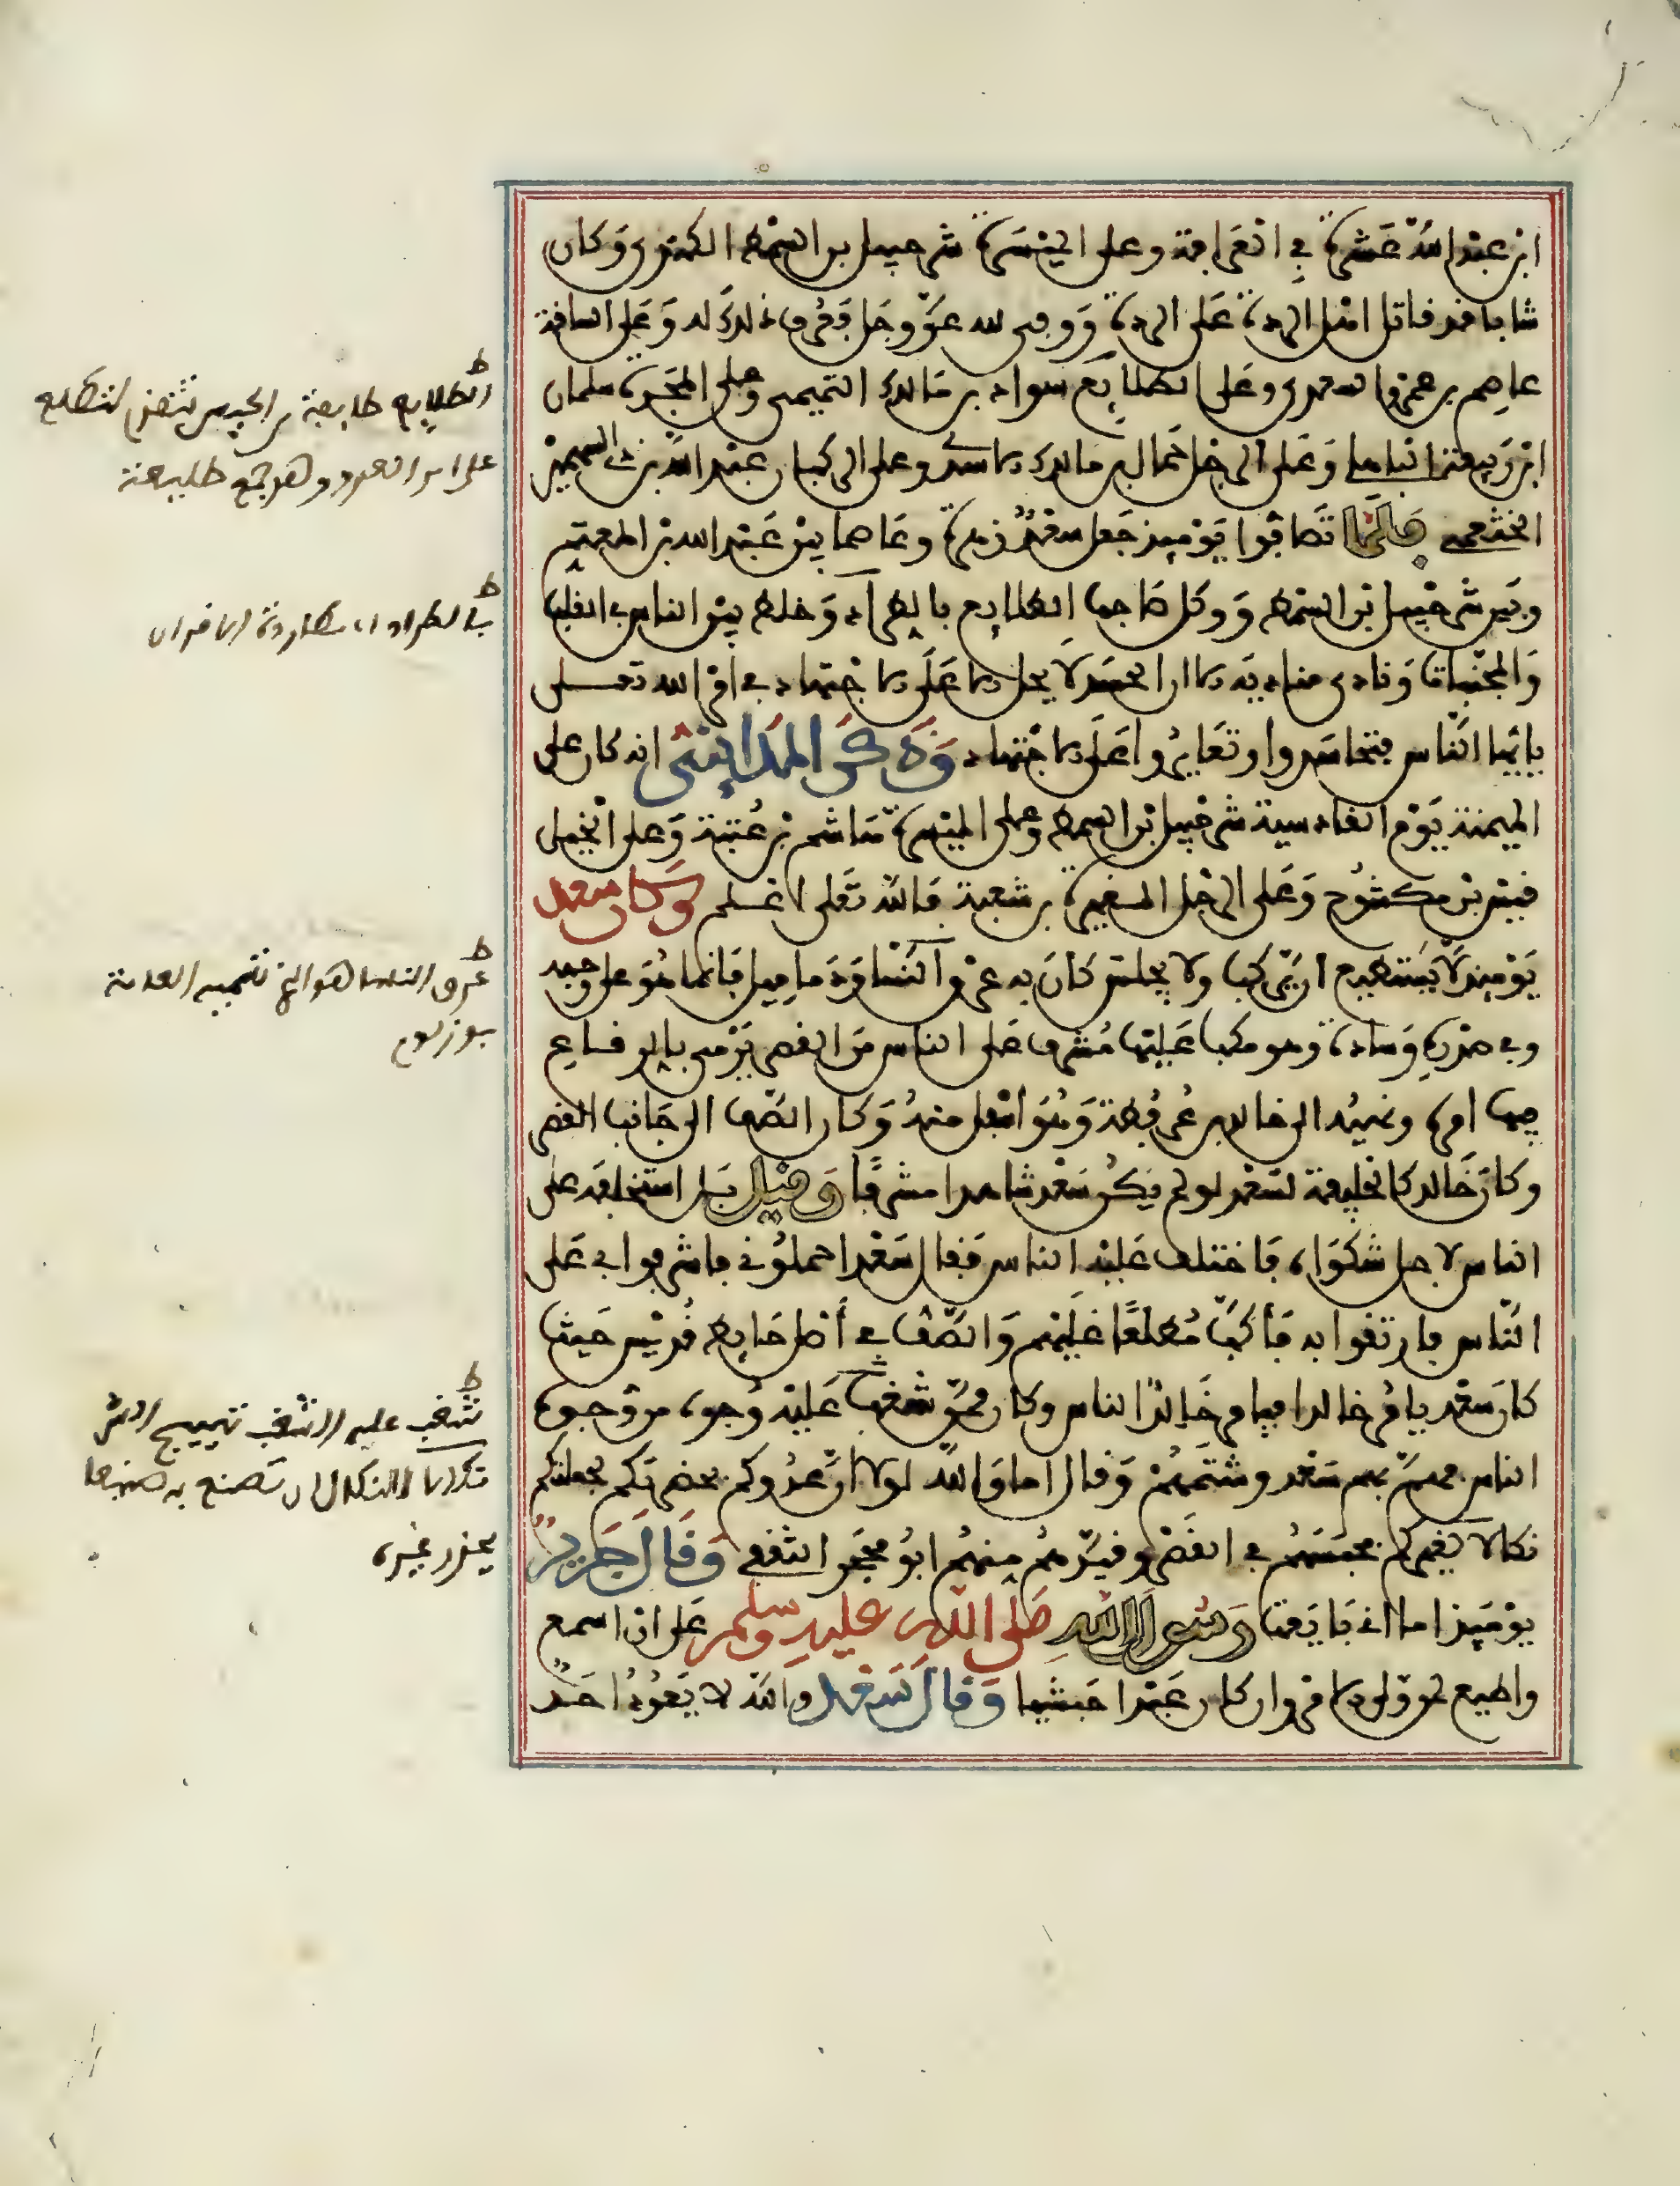 ابن عبد الله عشرة في العرافة وعلى الميسرة شرحبيل بن السمط الكندي وكان
شابا قد قاتل اهل الردة على الردة ووفى لله عز وجل فعرف ذلك له وعلى الساقة
عاصم بن عمرو السعدي وعلى الطلايع سواد بن مالك التميمي وعلى المجردة سلمان
ابن ربيعة الباهلي وعلى الرجل حمال بن مالك الاسدي وعلى الركبان عبد الله بن ذي السهمين
الخثعمي فلما تصافوا يوميذ جعل سعد زهرة وعاصما بين عبد الله بن المعتم
وبين شرحبيل بن السمط ووكل صاحب الطلايع بالطراد وخلط بين الناس في القلب
والمجنبات ونادى مناديه الا ان الحسد لا يحل الا على الاجتهاد في امر الله تعلى
يايها الناس فتحاسدوا وتغايروا على الاجتهاد وذكر المدايني انه كان على
الميمنة يوم القادسية شرحبيل بن السمط وعلى الميسرة هاشم بن عتبة وعلى الخيل
قيس بن مكشوح وعلى الرجل المغيرة بن شعبة فالله تعلى اعلم وكان سعد
يوميذ لا يستطيع ان يركب ولا يجلس كان به عرق النسا ودماميل فانما هو على وجهه
وفي صدره وسادة وهو مكب عليها مشرف على الناس من القصر يرمي بالرقاع
فيها امره ونهيه الى خالد بن عرفطة وهو اسفل منه وكان الصف الى جانب القصر
وكان خالد كالخليفة لسعد لو لم يكن سعد شاهدا مشرفا وقيل بل استخلفه على
الناس لاجل شكواه فاختلف عليه الناس فقال سعد احملوني فاشرفوا بي على
الناس فارتقوا به فأكب مطلعا عليهم والصف في أصل حايط قديس حيث
كان سعد يامر خالدا فيامر خالد الناس وكان ممن شغب عليه وجوه من وجوه
الناس فهم بهم سعد وشتمهم وقال اما والله لولا ان عدوكم بحضرتكم لجعلتكم
نكالا لغيركم فحبسهم في القصر وقيدهم منهم ابو محجن الثقفي وقال جرير
يوميذ اما اني بايعت رسول الله صلى الله عليه وسلم على ان اسمع
واطيع لمن ولي الامر وان كان عبدا حبشيا وقال سعد والله لا يعود احد
ط
الطلايع طليعة من الجيش تتقدم لتطلع
على امر العدو وهو جمع طليعة
ط
بالطراد اي مطاردة الاقران
ط
عرق النسا هو الذي تسميه العامة
بوزلوم
ط
شغب عليه الشغب تهييج الشر
نكالا النكال ان تصنع به صنيعا
يحذر غيره